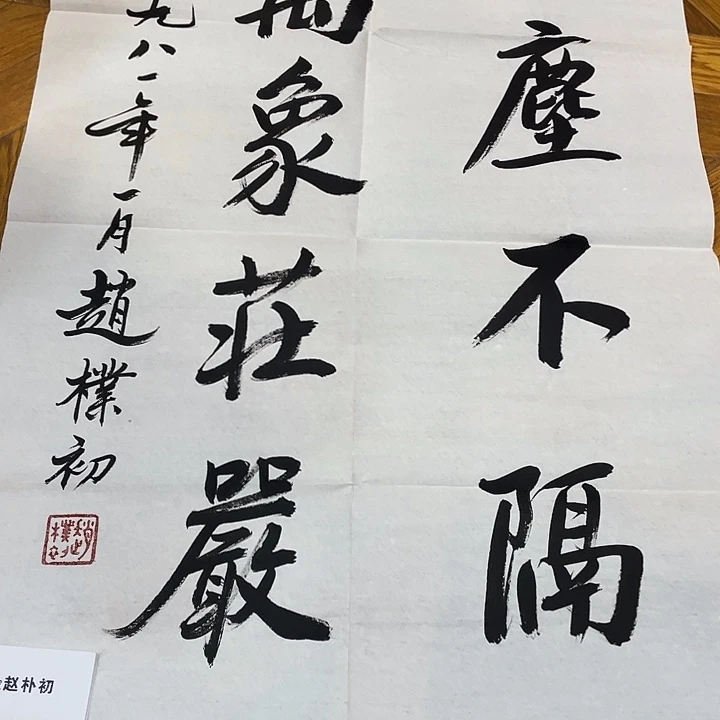 塵不隔
萬象莊嚴
九八一年一月趙樸初
趙樸初
赵朴初